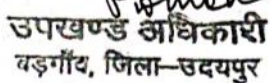 उपखण्ड अधिकारी
बड़गाँव, जिला—उदयपुर